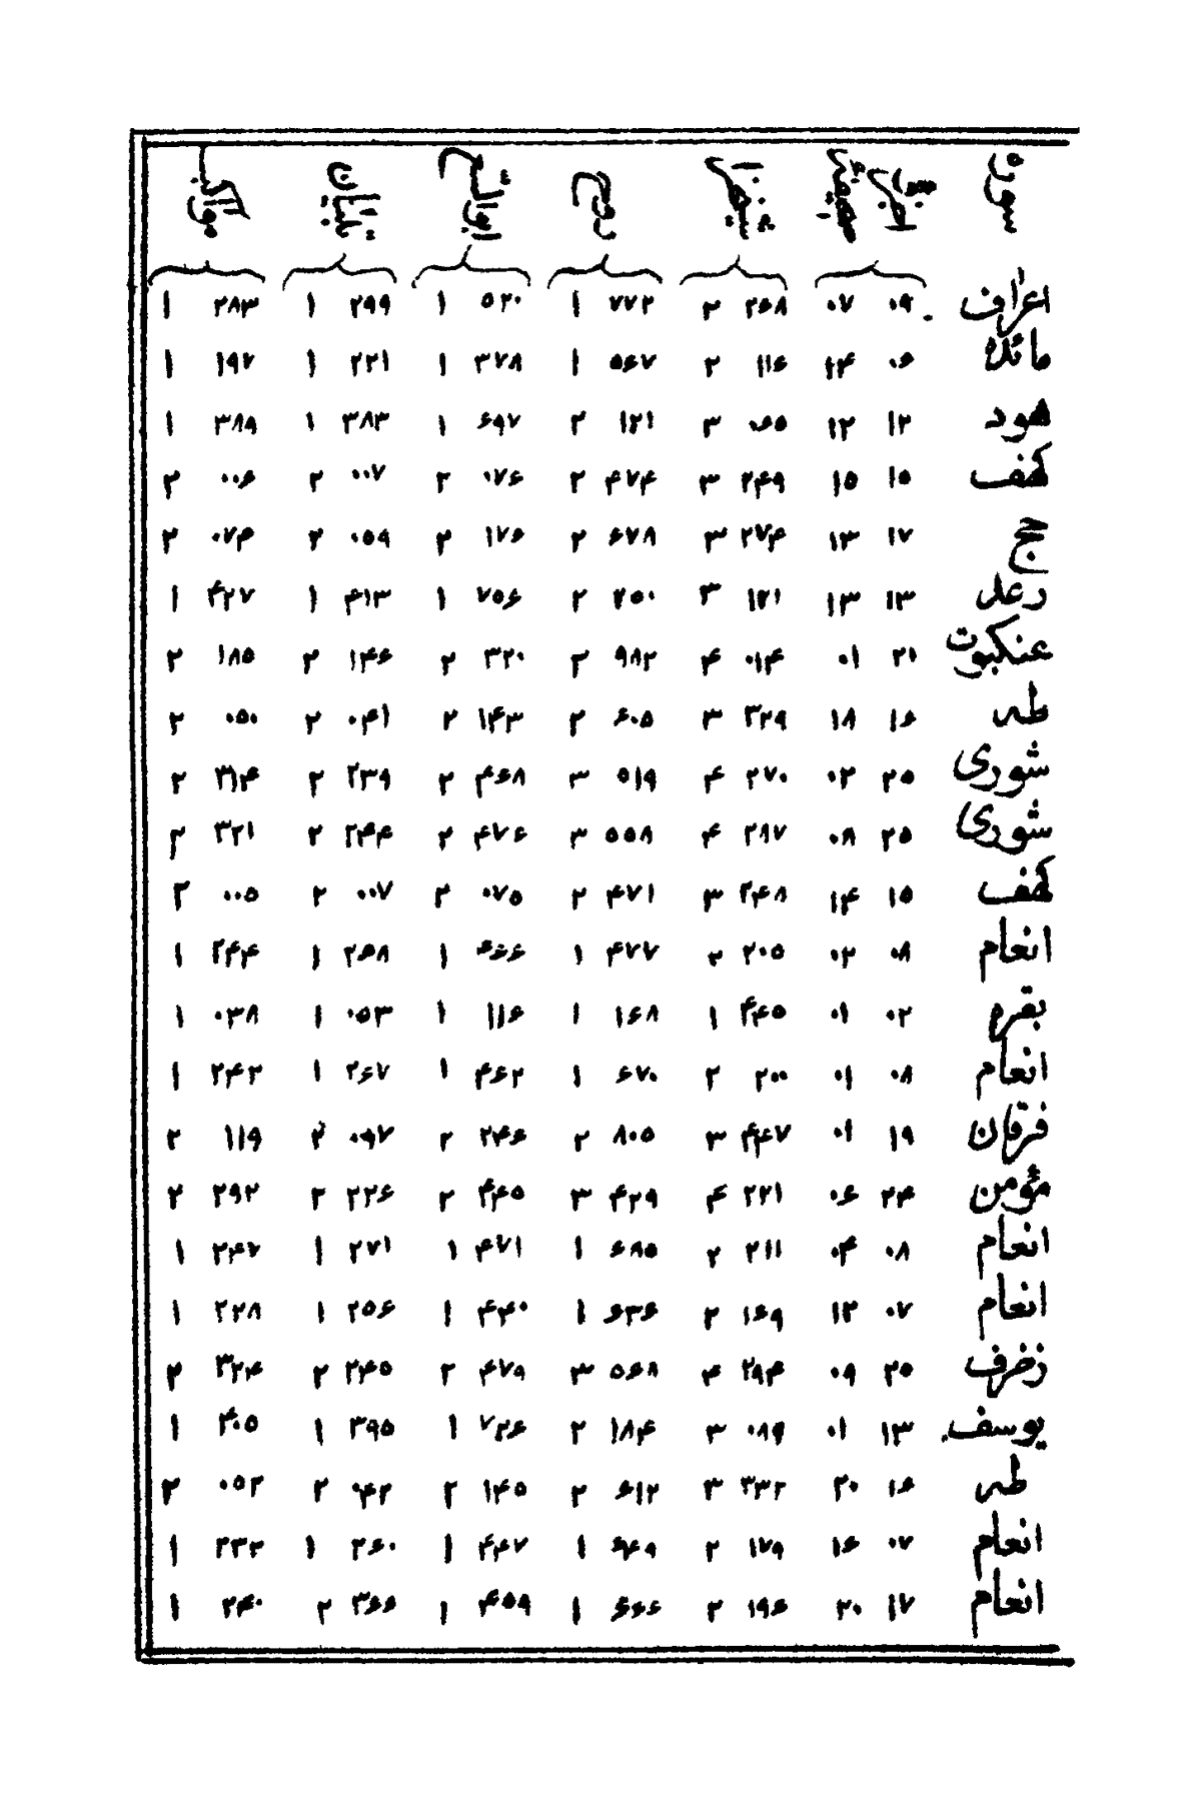 سوره
اعراف ۰۹ ۰۷ ۲۶۸ ۲ ۷۷۲ ۱ ۵۲۰ ۱ ۲۹۹ ۱ ۲۸۳ ۱
مائده ۰۶ ۱۴ ۱۱۶ ۲ ۵۶۷ ۱ ۳۷۸ ۱ ۲۲۱ ۱ ۱۹۷ ۱
هود ۱۲ ۱۲ ۰۶۵ ۳ ۱۲۱ ۲ ۶۹۷ ۱ ۳۸۳ ۱ ۳۸۹ ۱
کهف ۱۵ ۱۵ ۲۴۹ ۳ ۴۷۴ ۲ ۰۷۶ ۲ ۰۰۷ ۲ ۰۰۶ ۲
حج ۱۷ ۱۳ ۲۷۴ ۳ ۶۷۸ ۲ ۱۷۶ ۲ ۰۵۹ ۲ ۰۷۴ ۲
رعد ۱۳ ۱۳ ۱۲۱ ۳ ۲۵۰ ۲ ۷۵۶ ۱ ۴۱۳ ۱ ۴۲۷ ۱
عنکبوت ۲۱ ۰۱ ۰۱۴ ۴ ۹۸۲ ۲ ۳۲۰ ۲ ۱۴۶ ۲ ۱۸۵ ۲
طه ۱۶ ۱۸ ۳۲۹ ۳ ۶۰۵ ۲ ۱۴۳ ۲ ۰۴۱ ۲ ۰۵۰ ۲
شوری ۲۵ ۰۲ ۲۷۰ ۴ ۵۱۹ ۳ ۴۶۸ ۲ ۲۳۹ ۲ ۳۱۴ ۲
شوری ۲۵ ۰۸ ۲۸۷ ۴ ۵۵۸ ۳ ۴۷۶ ۲ ۲۴۴ ۲ ۳۲۱ ۲
کهف ۱۵ ۱۴ ۲۴۸ ۳ ۴۷۱ ۲ ۰۷۵ ۲ ۰۰۷ ۲ ۰۰۵ ۲
انعام ۰۸ ۰۲ ۲۰۵ ۲ ۴۷۷ ۱ ۴۶۶ ۱ ۲۶۸ ۱ ۲۴۴ ۱
بقره ۰۲ ۰۱ ۴۴۵ ۱ ۱۶۸ ۱ ۱۱۶ ۱ ۰۵۳ ۱ ۰۳۸ ۱
انعام ۰۸ ۰۱ ۲۰۰ ۲ ۶۷۰ ۱ ۴۶۲ ۱ ۲۶۷ ۱ ۲۴۲ ۱
فرقان ۱۹ ۰۱ ۴۴۷ ۳ ۸۰۵ ۲ ۲۴۶ ۲ ۰۹۷ ۲ ۱۱۹ ۲
مؤمن ۲۴ ۰۶ ۲۲۱ ۴ ۴۲۹ ۳ ۴۴۵ ۲ ۲۲۶ ۲ ۲۹۲ ۲
انعام ۰۸ ۰۴ ۲۱۱ ۲ ۶۸۵ ۱ ۴۷۱ ۱ ۲۷۱ ۱ ۲۴۷ ۱
انعام ۰۷ ۱۲ ۱۶۹ ۲ ۶۳۶ ۱ ۴۴۰ ۱ ۲۵۶ ۱ ۲۲۸ ۱
زخرف ۲۵ ۰۹ ۲۹۴ ۴ ۵۶۸ ۳ ۴۷۹ ۲ ۲۴۵ ۲ ۳۲۴ ۲
یوسف ۱۳ ۰۱ ۰۸۹ ۳ ۱۸۴ ۲ ۷۲۶ ۱ ۳۹۵ ۱ ۴۰۵ ۱
طه ۱۶ ۲۰ ۳۳۲ ۳ ۶۱۲ ۲ ۱۴۵ ۲ ۰۴۲ ۲ ۰۵۲ ۲
انعام ۰۷ ۱۶ ۱۷۹ ۲ ۶۴۹ ۱ ۴۴۷ ۱ ۲۶۰ ۱ ۲۳۲ ۱
انعام ۱۷ ۲۰ ۱۹۶ ۲ ۶۶۶ ۱ ۴۵۹ ۱ ۳۶۶ ۲ ۲۴۰ ۱